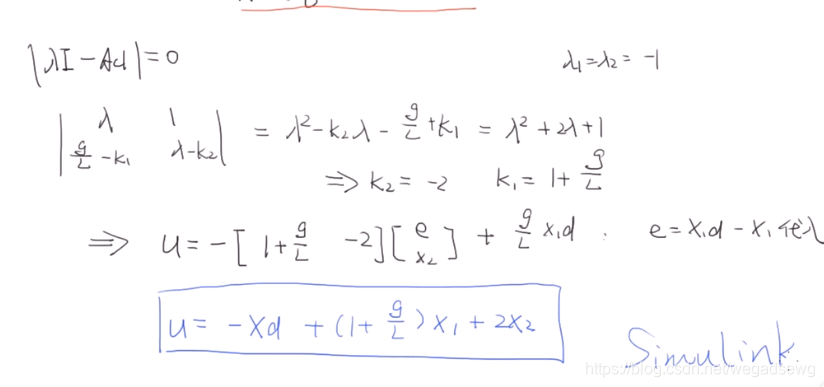 |λI-Acl|=0 λ₁=λ₂= -1
| λ 1 | = λ²-k₂λ- g/L +k₁ = λ²+2λ+1
| g/L -k₁ λ-k₂ |
⇒ k₂= -2 k₁= 1+ g/L
⇒ u= -[ 1+ g/L -2][ e x₂ ] + g/L x₁d . e= x₁d - x₁ 代入
u= -xd +(1+ g/L )x₁+2x₂
Simulink.
https://blog.csdn.net/wagadsewg